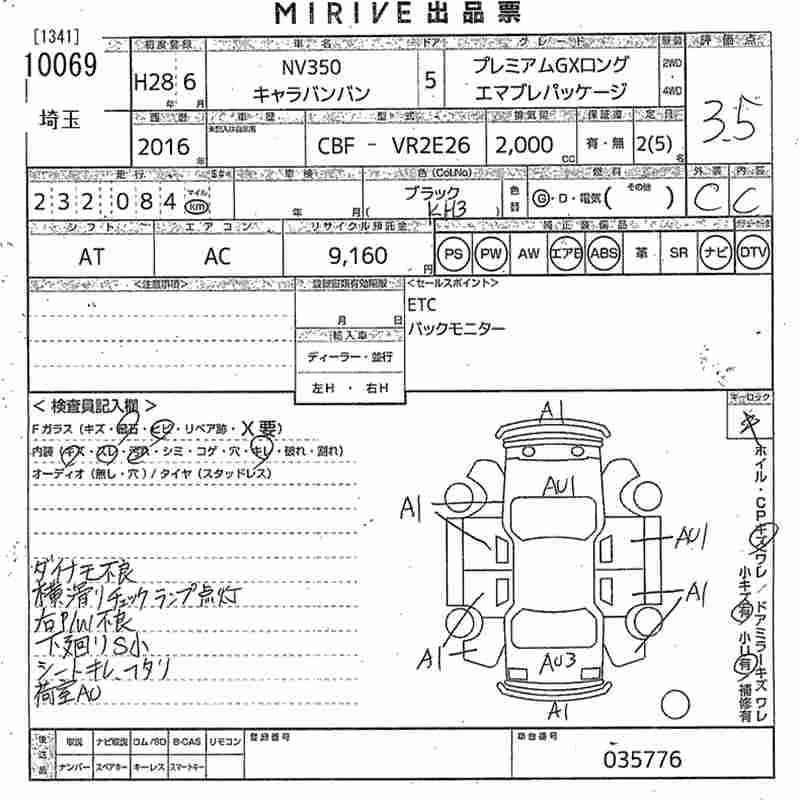 MIRIVE出品票
[1341]
10069
埼玉
初度登録 車名 ドア グレード 駆動 評価点
H28 6 年 月
NV350
キャラバンバン
5
プレミアムGXロング
エマブレパッケージ
2WD
・
4WD
3.5
西暦 車歴 型式 排気量 保証書 定員
2016 年 CBF - VR2E26 2,000 CC 有・無 2(5) 名
走行 車検 色(Col.No) 燃料 外装 内装
232084 マイル km
年 月
ブラック
( KH3 )
色替
G・D・電気( その他 )
C C
シフト エアコン リサイクル預託金 純正装備品
AT AC 9,160 円
PS PW AW エアB ABS 革 SR ナビ DTV
<注意事項> <セールスポイント>
月 日
輸入車
ディーラー・並行
左H ・ 右H
ETC
バックモニター
< 検査員記入欄 >
Fガラス(キズ・飛石・ヒビ・リペア跡・X要)
内装(キズ・スレ・汚れ・シミ・コゲ・穴・キレ・破れ・割れ)
オーディオ(無し・穴)/タイヤ(スタッドレス)
ダイナモ不良
横滑りチェックランプ点灯
右P/W不良
下廻りS小
シートキレ、ヘタリ
荷室AU
A1
AU1
A1
AU1
A1
A1
AU3
A1
キーロック
ホイル・CPキズワレ/ドアミラーキズワレ
小キズ有 小U有 補修有
後送品
取説 ナビ取説 ロム/SD B-CAS リモコン
ナンバー スペアキー キーレス スマートキー
登録番号
車台番号
035776